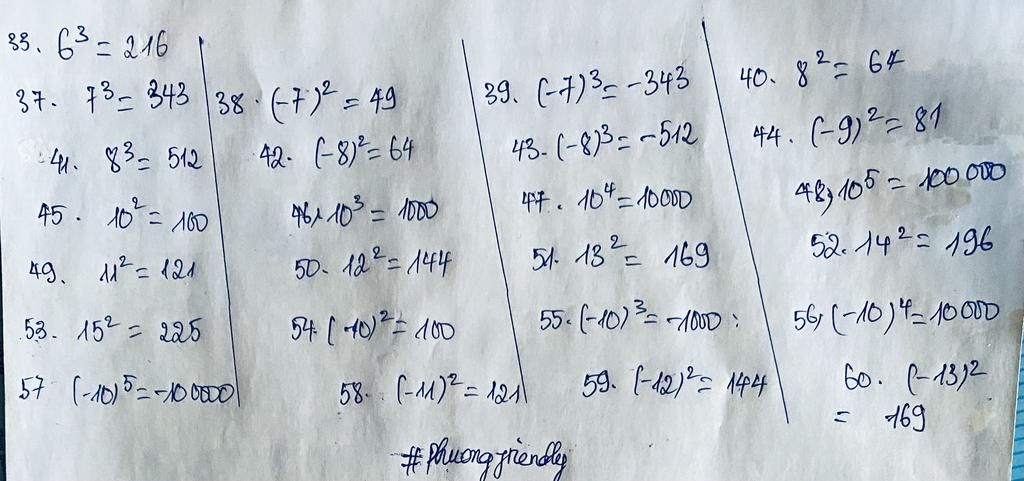 33. 6³ = 216
37. 7³ = 343 38. (-7)² = 49 39. (-7)³ = -343 40. 8² = 64
41. 8³ = 512 42. (-8)² = 64 43. (-8)³ = -512 44. (-9)² = 81
45. 10² = 100 46, 10³ = 1000 47. 10⁴ = 10000 48, 10⁵ = 100000
49. 11² = 121 50. 12² = 144 51. 13² = 169 52. 14² = 196
53. 15² = 225 54. (-10)² = 100 55. (-10)³ = -1000 : 56, (-10)⁴ = 10000
57 (-10)⁵ = -100000 58. (-11)² = 121 59. (-12)² = 144 60. (-13)²
= 169
#phuongfriendly